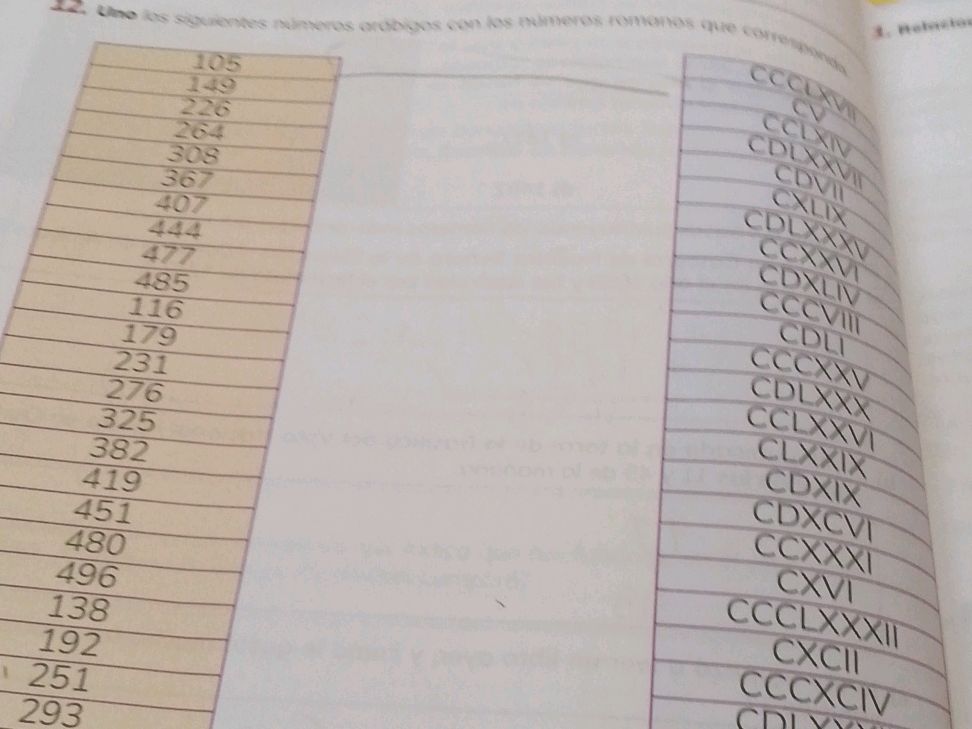 12. Uno los siguientes números arábigos con los números romanos que corresponda.
105
149
226
264
308
367
407
444
477
485
116
179
231
276
325
382
419
451
480
496
138
192
251
293
CCCLXVII
CV
CCLXIV
CDLXXVII
CDVII
CXLIX
CDLXXXV
CCXXVI
CDXLIV
CCCVIII
CDLI
CCCXXV
CDLXXX
CCLXXVI
CLXXIX
CDXIX
CDXCVI
CCXXXI
CXVI
CCCLXXXII
CXCII
CCCXCIV